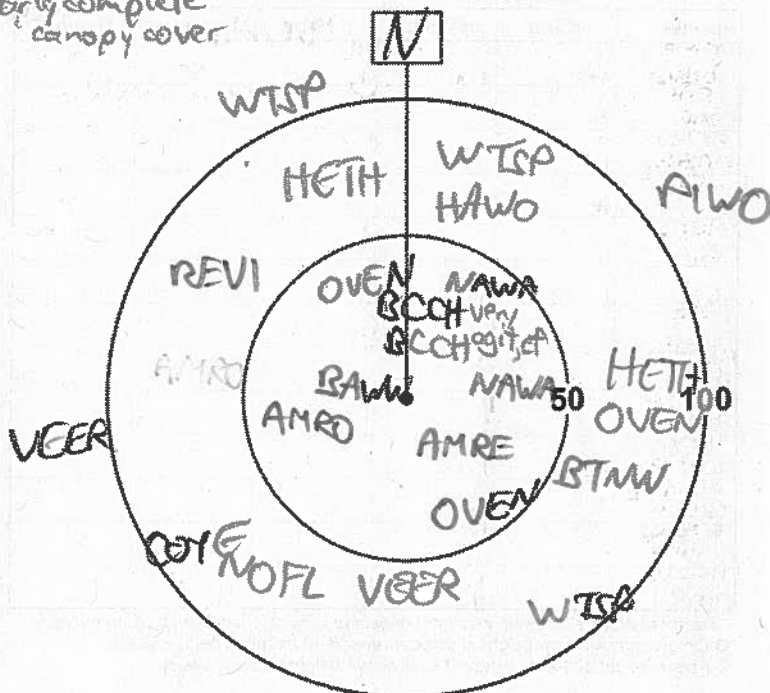 complete
canopy cover
N
WTSP
WTSP
HETH
HAWO
PIWO
REVI
OVEN
NAWA
BCCH very
BCCH agitated
AMRO
BAWW
NAWA
50
HETH
100
AMRO
OVEN
VEER
AMRE
BTNW
OVEN
COYE
NOFL
VEER
WTSP